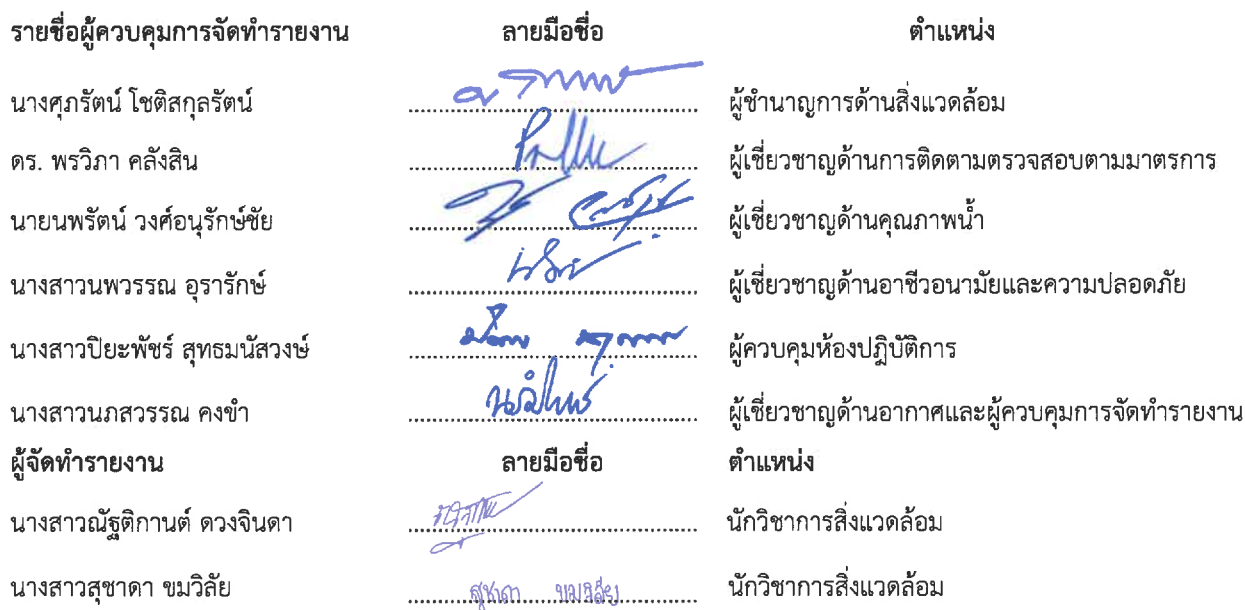 รายชื่อผู้ควบคุมการจัดทำรายงาน ลายมือชื่อ ตำแหน่ง
นางศุภรัตน์ โชติสกุลรัตน์ ผู้ชำนาญการด้านสิ่งแวดล้อม
ดร. พรวิภา คลังสิน ผู้เชี่ยวชาญด้านการติดตามตรวจสอบตามมาตรการ
นายนพรัตน์ วงศ์อนุรักษ์ชัย ผู้เชี่ยวชาญด้านคุณภาพน้ำ
นางสาวนพวรรณ อุรารักษ์ ผู้เชี่ยวชาญด้านอาชีวอนามัยและความปลอดภัย
นางสาวปิยะพัชร์ สุทธมนัสวงษ์ ผู้ควบคุมห้องปฏิบัติการ
นางสาวนภสวรรณ คงขำ ผู้เชี่ยวชาญด้านอากาศและผู้ควบคุมการจัดทำรายงาน
ผู้จัดทำรายงาน ลายมือชื่อ ตำแหน่ง
นางสาวณัฐติกานต์ ดวงจินดา นักวิชาการสิ่งแวดล้อม
นางสาวสุชาดา ขมวิลัย สุชาดา ขมวิลัย นักวิชาการสิ่งแวดล้อม